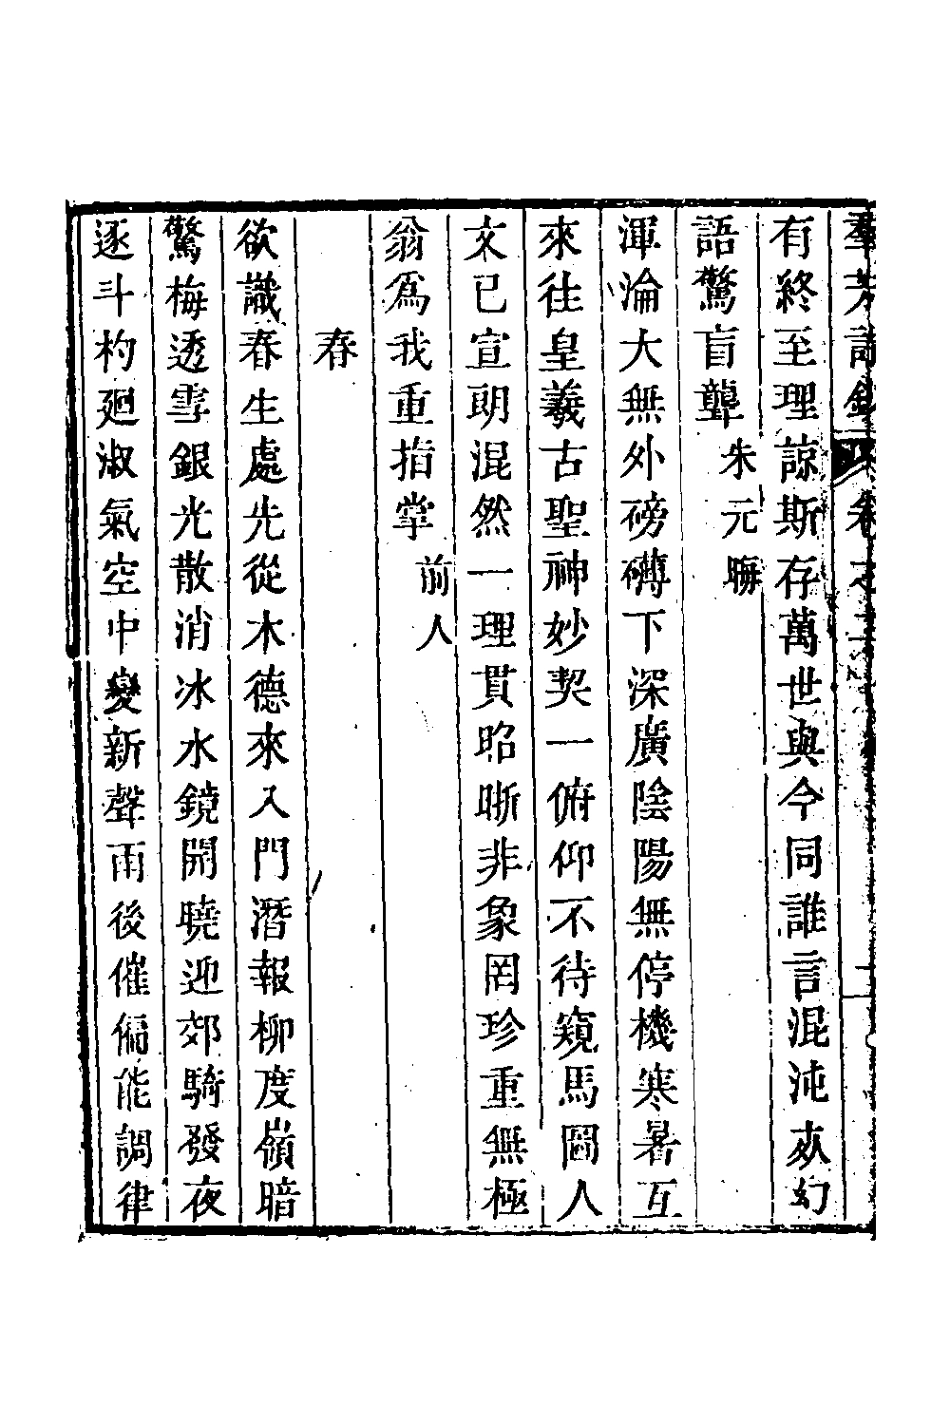 羣芳詩鈔 卷之
有終至理諒斯存萬世與今同誰言混沌死幻
語驚盲聾 朱元晦
渾淪大無外磅礴下深廣陰陽無停機寒暑互
來往皇羲古聖神妙契一俯仰不待窺馬圖人
文已宣朗混然一理貫昭晰非象罔珍重無極
翁爲我重指掌 前人
春
欲識春生處先從木德來入門潛報柳度嶺暗
驚梅透雪銀光散消冰水鏡開曉迎郊騎發夜
逐斗杓廻淑氣空中變新聲雨後催偏能調律